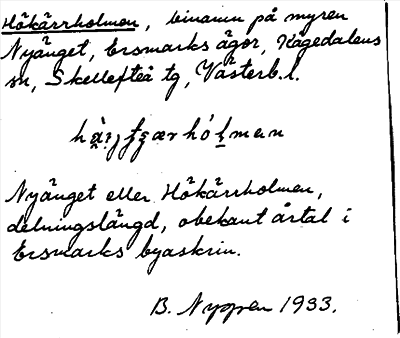 Hökärrholmen, binamn på myren
Nyänget, Ersmarks ägor, Kågedalens
sn, Skellefteå tg, Västerb. l.
Nyänget eller Hökärrholmen,
delningslängd, obekant årtal i
Ersmarks byaskrin.
B. Nyppen 1933.